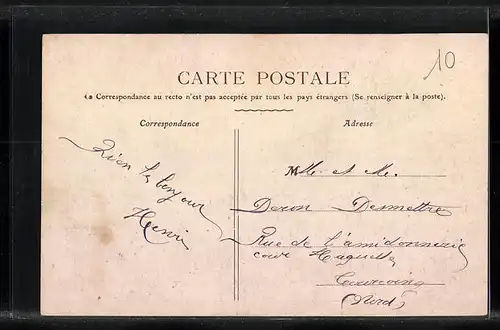 10
CARTE POSTALE
La Correspondance au recto n'est pas acceptée par tous les pays étrangers (Se renseigner à la poste).
Correspondance
Adresse
Bien le bonjour
Henri
M. et M.
Deron Desmettre
Rue de l'amidonnerie
cour
Tourcoing
(Nord)